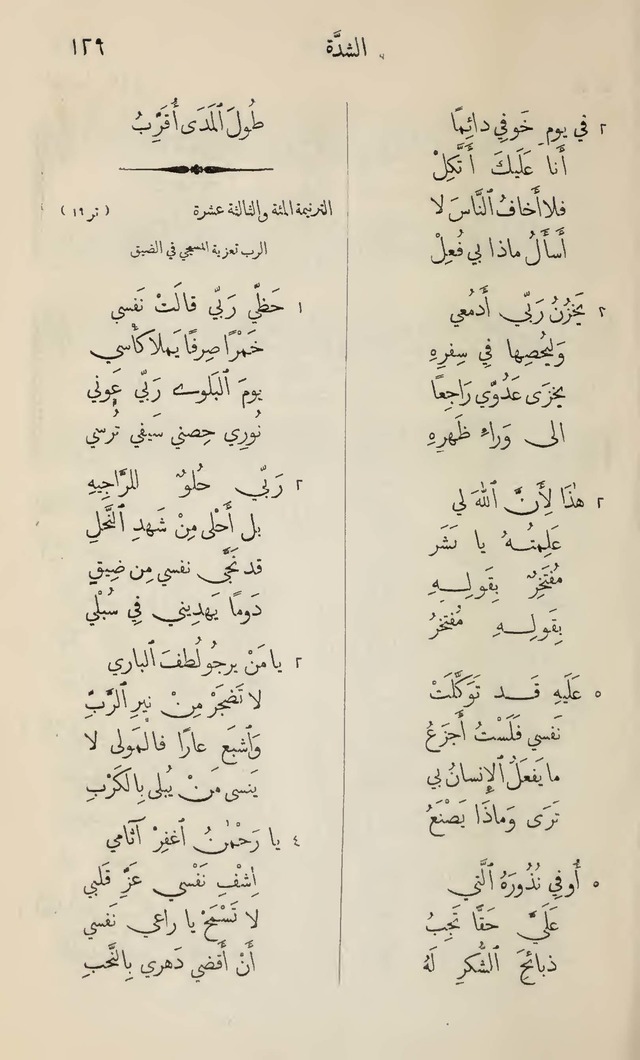 الشدَّة
١٢٩
٢ في يومِ خَوفِي دائِمًا
أَنا عَلَيكَ أَتَّكِلْ
فلا أَخافُ ٱلنَّاسَ لا
أَسأَلُ ماذا بي فُعِلْ
٢ يَخزُنُ رَبِّي أَدمُعي
وَلِيُحصِها في سِفرِهِ
يخزَى عَدُوِّي رَاجِعًا
الى وَراءِ ظَهرِهِ
٢ هٰذا لِأَنَّ ٱللهَ لي
عَلِمتُهُ يا بَشَر
مُفتَخِرٌ بِقَولِهِ
بِقَولِهِ مُفتَخرُ
٥ عَلَيهِ قَد تَوَكَّلَتْ
نَفسي فَلَستُ أَجزَعُ
ما يَفعَلُ ٱلإِنسانُ بي
تَرَى وَماذَا يَصْنَعُ
٥ أُوفي نُذُورَهُ ٱلَّتي
عَلَيَّ حَقًّا تَجِبُ
ذبائحَ ٱلشُّكرِ لَهُ
طُولَ ٱلمَدَى أُقَرِّبُ
الترنيمة المئة والثالثة عشرة (تر ١٩)
الرب تعزية المسيحي في الضيق
١ حَظِّي رَبِّي قالَتْ نَفسي
خَمْرًا صِرفًا يملا كأْسي
يومَ ٱلبَلوے رَبِّي عَوني
نُورِي حِصني سَيفي تُرسي
٢ رَبِّي حُلوٌ للرَّاجِيهِ
بل أَحْلى مِنْ شَهدِ ٱلنَّحلِ
قد نَجَّى نفسي مِن ضِيقٍ
دَومًا يَهدِيني في سُبْلي
٢ يا مَنْ يرجو لُطفَ ٱلباري
لا تَضجَرْ مِنْ نِيرِ ٱلرَّبِّ
وَٱشبَع عارًا فالمَولى لا
يَنسى مَنْ يُبلى بِٱلكَرْبِ
٤ يا رَحْمٰنُ ٱغفِرْ آثامي
اِشْفِ نَفْسي عَزِّ قلبي
لا تَسْمَحْ يا راعي نَفسي
أَنْ أَقضي دَهري بِالنَّحبِ